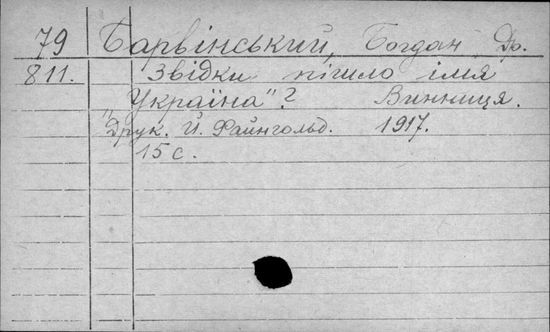 79 Барвінський, Богдан Др.
811. Звідки пішло імя
„Україна"? Винниця.
Друк. Й. Файнгольд. 1917.
15 с.